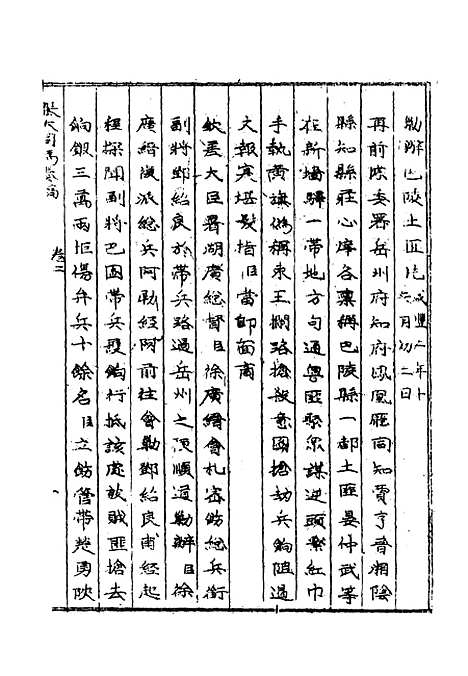 勦辦巴陵土匪片咸豐二年十
二月初二日
再前降委署岳州府知府鳳凰廳同知賈亨晉湘陰
縣知縣莊心庠各稟稱巴陵縣一都土匪晏仲武等
在新墻驛一帶地方句通粵匪聚眾謀逆頭裹紅巾
手執黃旗偽稱東王攔路搶殺意圖搶劫兵餉阻過
文報實堪髮指臣當即面商
欽差大臣署湖廣總督臣徐廣縉會札密飭總兵銜
副將鄧紹良於帶兵路過岳州之便順道勦辦臣徐
廣縉復派總兵阿勒經阿前往會勦鄧紹良甫經起
程探聞副將巴圖帶兵護餉行抵該處致賊匪搶去
餉銀三萬兩拒傷弁兵十餘名臣立飭管帶楚勇陝
張大司馬奏稿
卷二